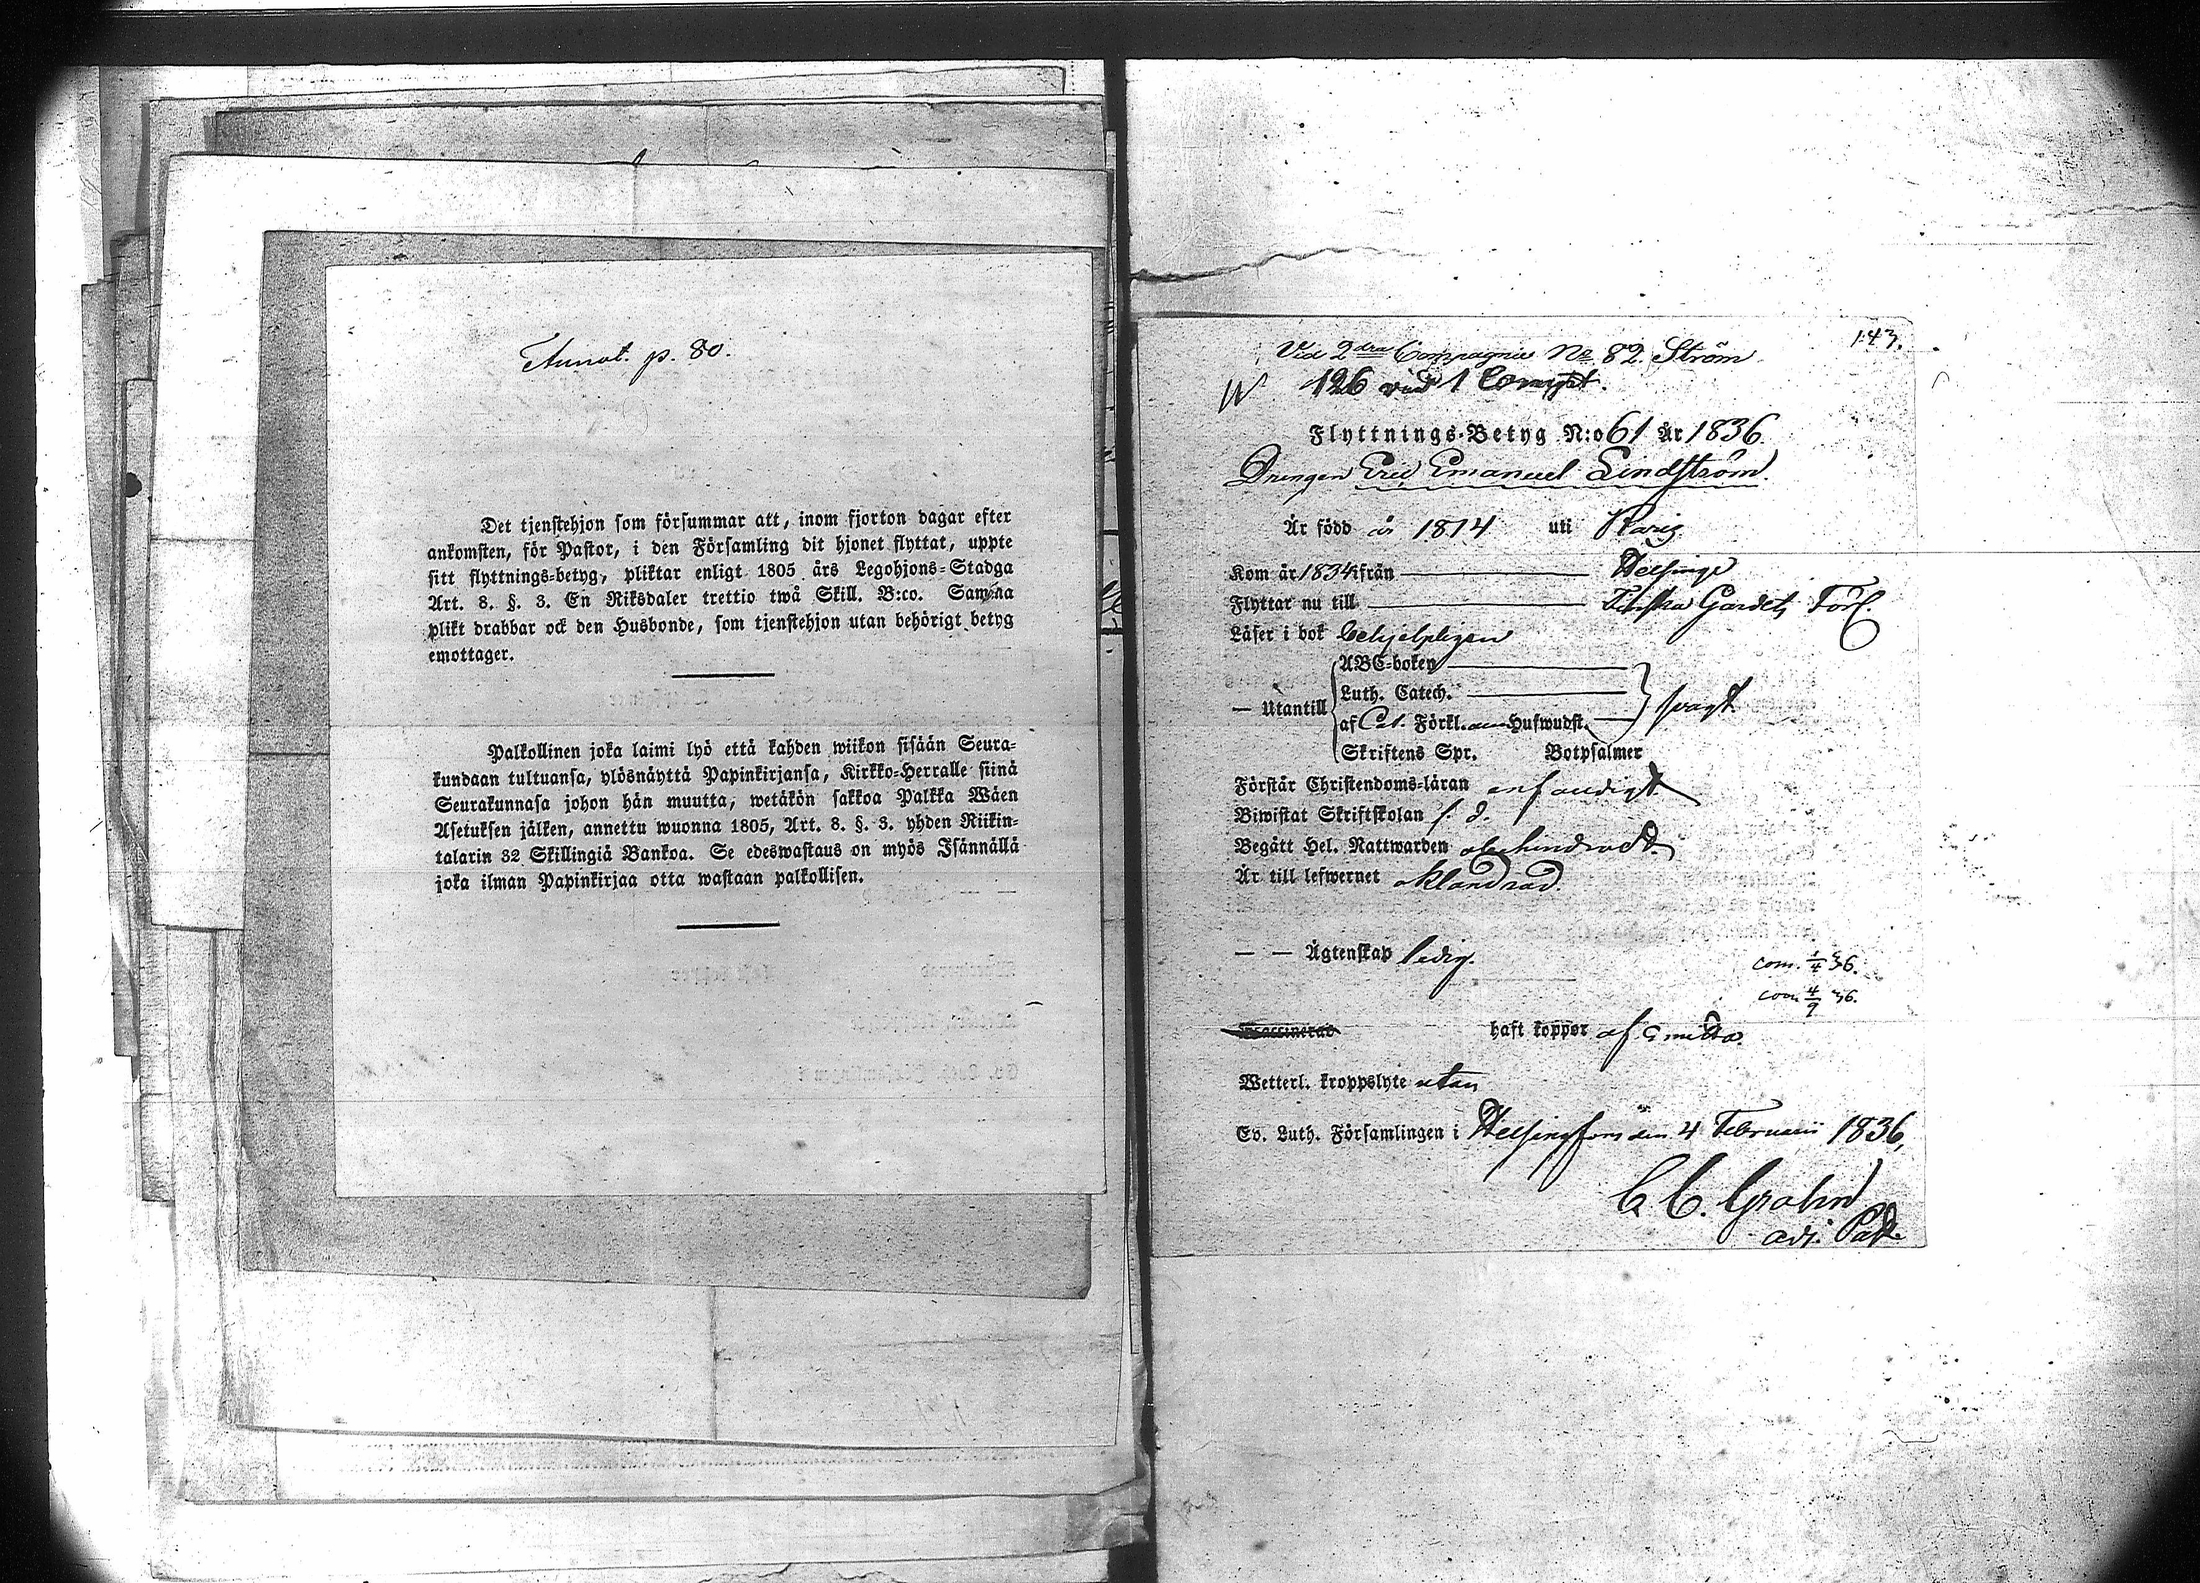 Annot. p. 80.
Det tjenstehjon som försummar att, inom fjorton dagar efter
ankomsten, för Pastor, i den Församling dit hjonet flyttat, uppte
sitt flyttnings-betyg, pliktar enligt 1805 års Legohjons-Stadga
Art. 8. §. 3. En Riksdaler trettio twå Skill. B:co. Samma
plikt drabbar ock den Husbonde, som tjenstehjon utan behörigt betyg
emottager.
Palkollinen joka laimi lyö että kahden wiikon sisään Seura-
kundaan tultuansa, ylösnäyttä Papinkirjansa, Kirkko-Herralle siinä
Seurakunnasa johon hän muutta, wetäkön sakkoa Palkka Wäen
Asetuksen jälken, annettu wuonna 1805, Art. 8. §. 3. yhden Riikin-
talarin 32 Skillingiä Bankoa. Se edeswastaus on myös Isännällä
joka ilman Papinkirjaa otta wastaan palkollisen.
143.
Vid 2dra Compagnie No 82. Ström
126 vid 1 Compt.
Flyttnings-Betyg N:o 61 år 1836.
Drengen Eric Emanuel Lindström.
Är född år 1814 uti Karis
Kom år 1834 ifrån Helsinge
Flyttar nu till Finska Gardets Förs.
Läser i bok behjelpligen
ABC-boken
Luth. Catech.
— Utantill svagt
af Cat. Förkl. Huswudst.
Skriftens Spr. Botpsalmer
Förstår Christendoms-läran enfaldigt
Biwistat Skriftskolan s. d.
Begått Hel. Nattwarden obehindradt
Är till lefwernet oklandrad.
— — Ägtenskap ledig.
com. 1/4 36.
com 4/9 36.
Vaccinerad haft koppor af smitta.
Wetterl. kroppslyte utan
Ev. Luth. Församlingen i Helsingfors den 4 Februarii 1836,
C C. Grahn
adj. Past.